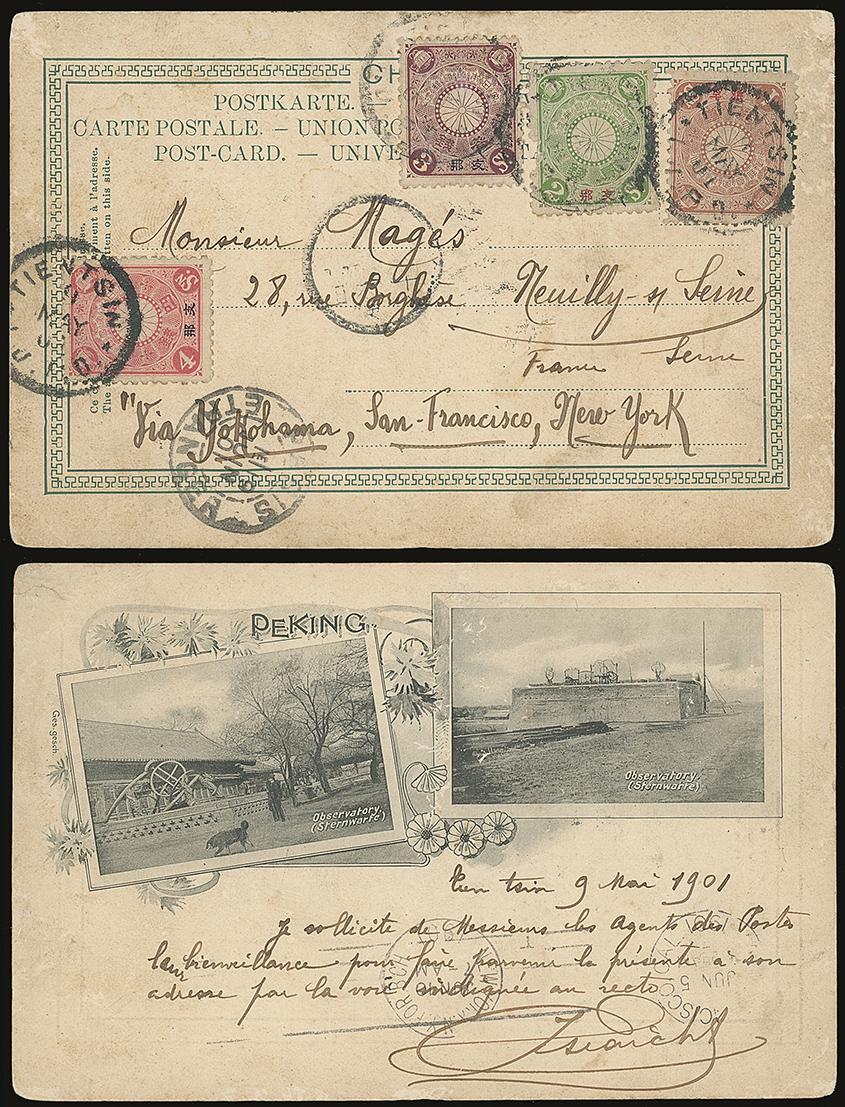 POSTKARTE. —
CARTE POSTALE. — UNION
POST-CARD. — UNIVE
3 Sn
支那
2 Sn
支那
TIENTSIN
TIENTSIN
4 Sn
支那
Monsieur Magés
28, rue Borghèse Neuilly-s/ Seine
France Seine
"Via Yokohama, San-Francisco, New York
ETRANGER
PEKING.
Ges. gesch.
Observatory
(Sternwarte)
Observatory
(Sternwarte)
Tien tsin 9 Mai 1901
Je sollicite de Messieurs les Agents des Postes
bienveillance pour faire parvenir la présente à son
adresse par la voie soulignée au recto
JUN 5